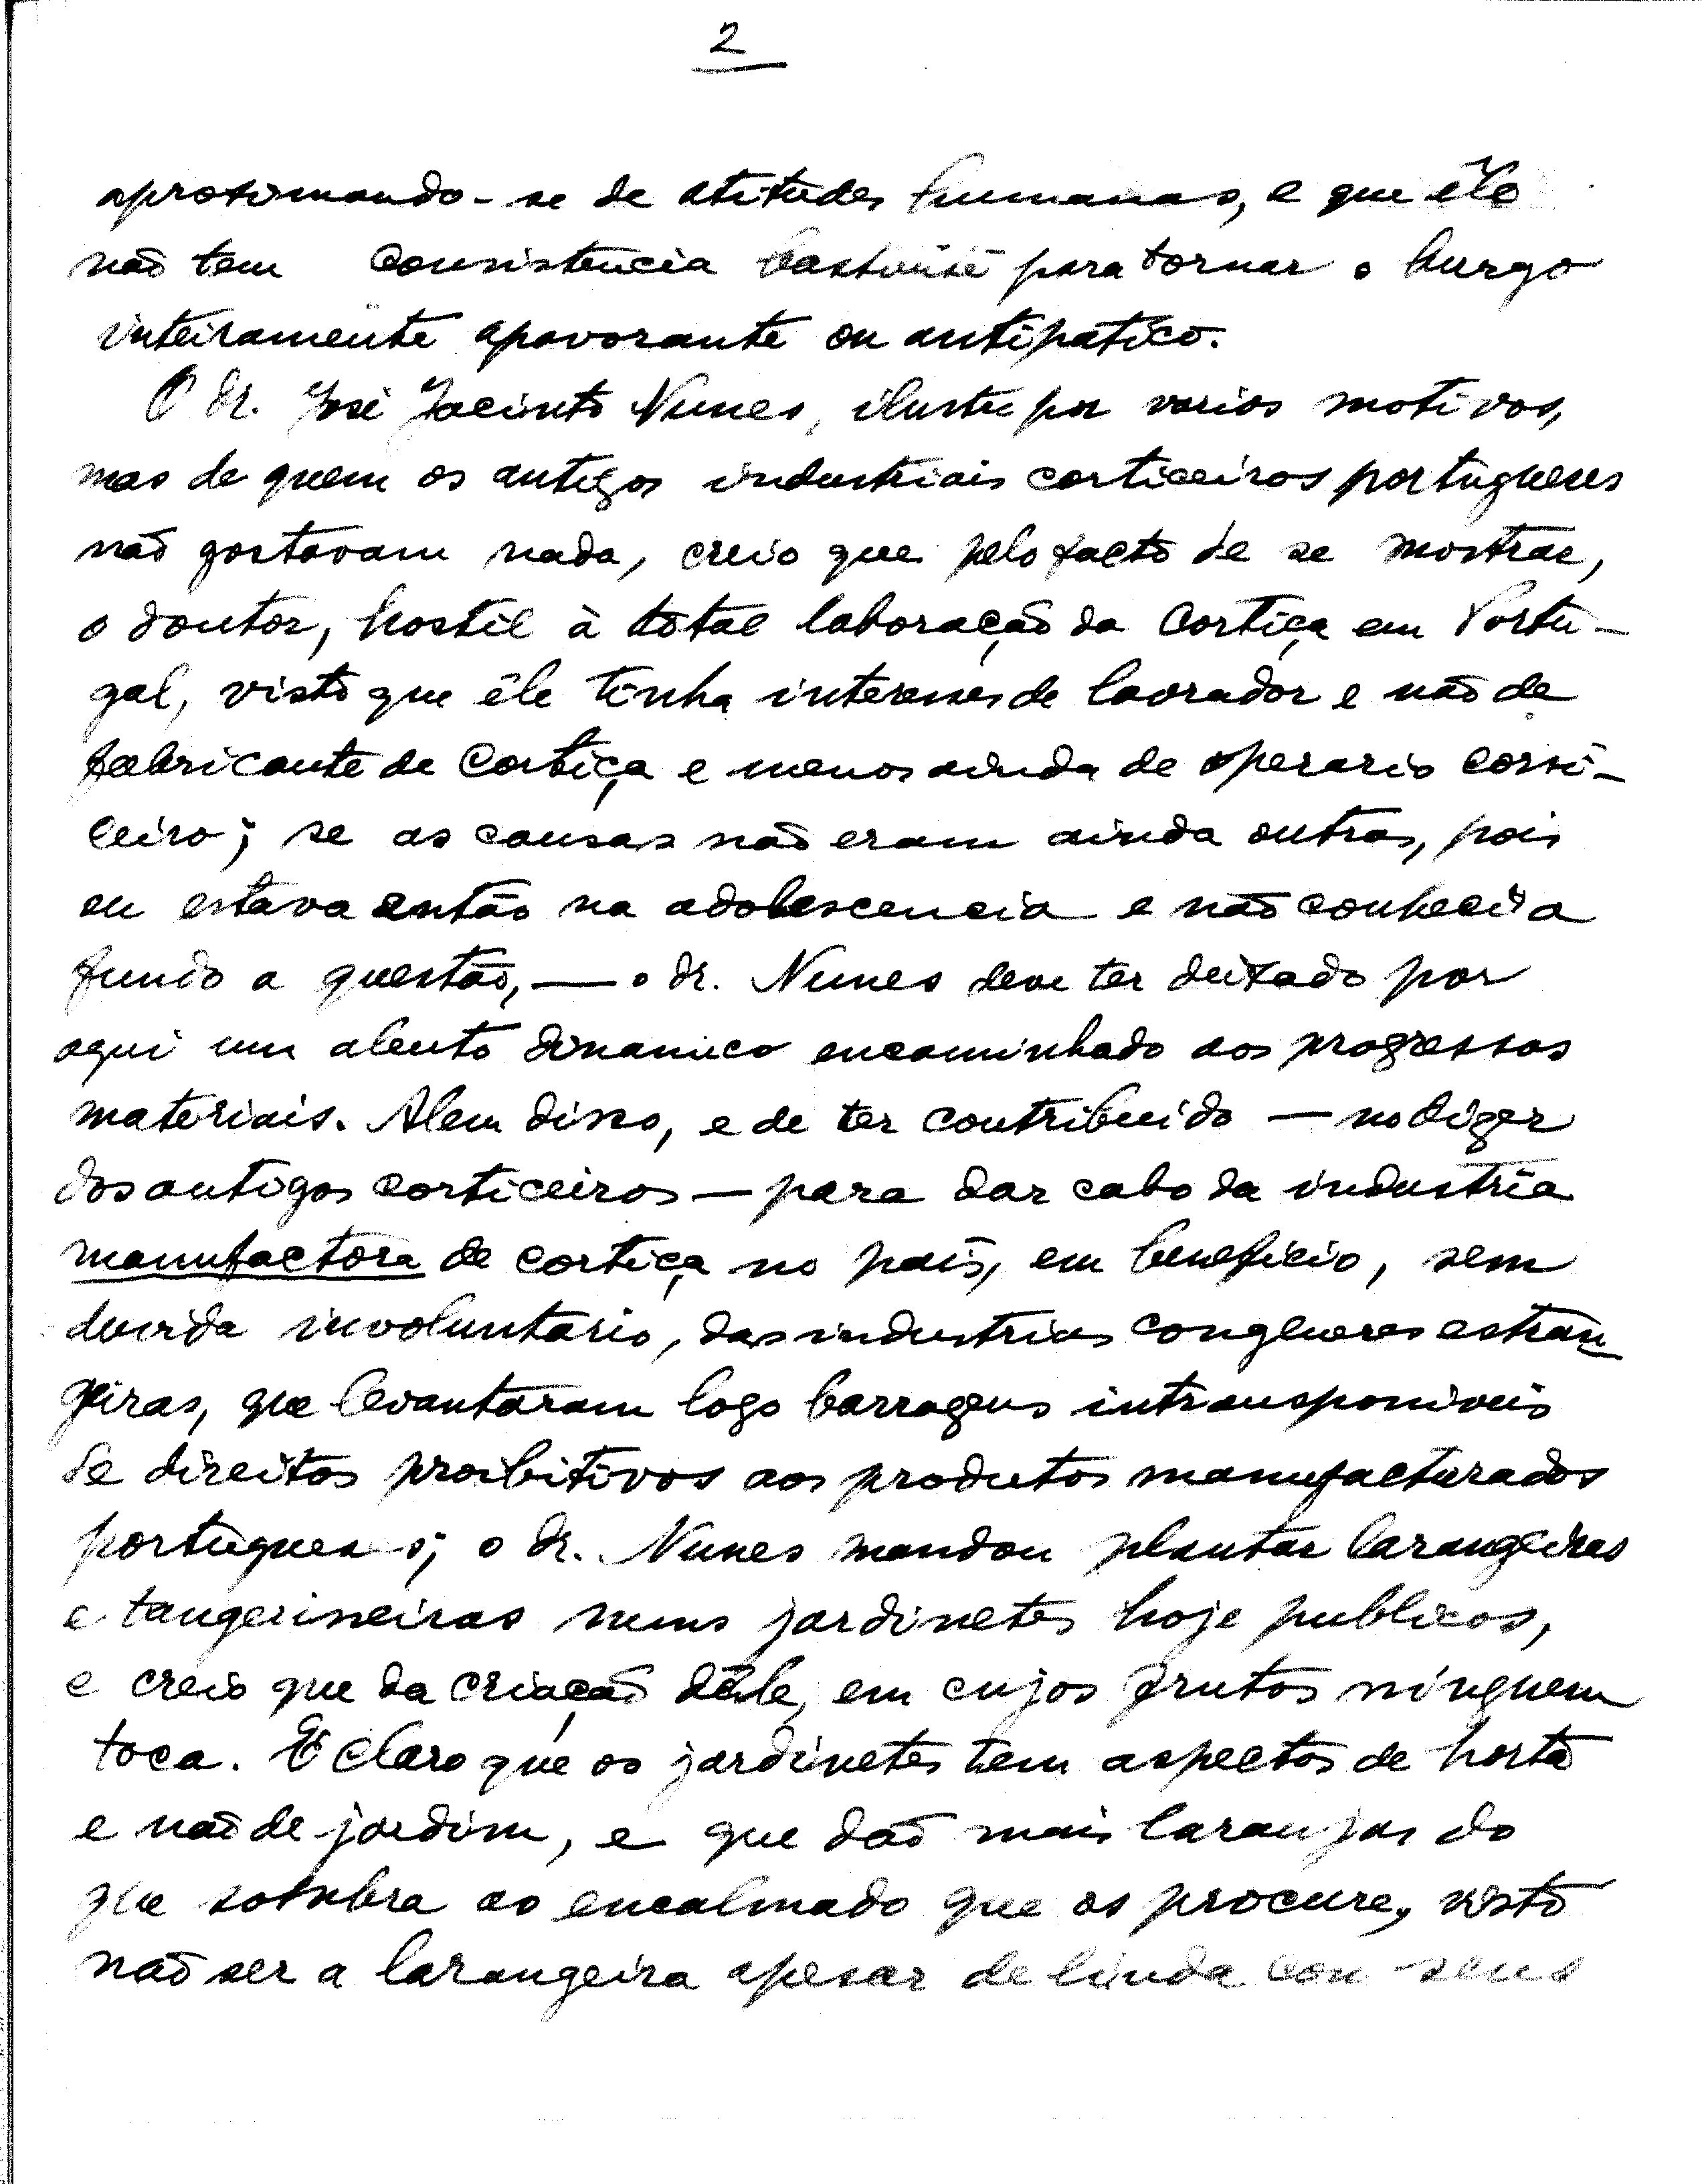 2
aproximando-se de atitudes humanas, e que êle
não tem consistencia bastante para tornar o burgo
inteiramente apavorante ou antipatico.
O dr. José Jacinto Nunes, ilustre por varios motivos,
mas de quem os antigos industriais corticeiros portugueses
não gostavam nada, creio que pelo facto de se mostrar,
o doutor, hostil à total laboração da cortiça em Portu-
gal, visto que êle tinha interesses de lavrador e não de
fabricante de cortiça e menos ainda de operario corti-
ceiro; se as causas não eram ainda outras, pois
eu estava então na adolescencia e não conhecia a
fundo a questão, — o dr. Nunes deve ter deixado por
aqui um alento dinamico encaminhado aos progressos
materiais. Alem disso, e de ter contribuido — no dizer
dos antigos corticeiros — para dar cabo da industria
manufactora de cortiça no pais, em beneficio, sem
duvida involuntario, das industrias congeneres estran-
geiras, que levantaram logo barragens intransponiveis
de direitos proibitivos aos produtos manufacturados
portugueses; o dr. Nunes mandou plantar larangeiras
e tangerineiras nuns jardinetes hoje publicos,
e creio que da criação dêle, em cujos frutos ninguem
toca. É claro que os jardinetes tem aspectos de horta
e não de jardim, e que dão mais laranjas do
que sombra ao encalmado que as procure, visto
não ser a larangeira apesar de linda com seus